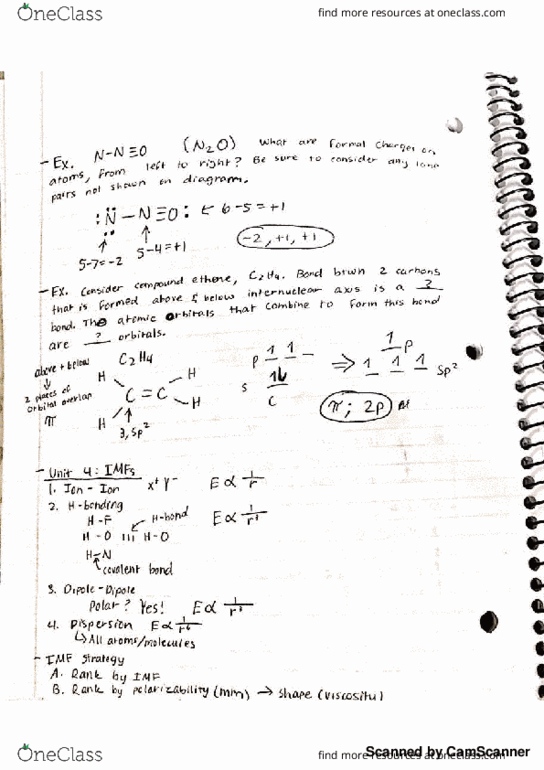 OneClass
find more resources at oneclass.com
- Ex. N-N≡O (N₂O) What are formal charges on
atoms, from left to right? Be sure to consider any lone
pairs not shown on diagram.
:N̈-N≡O: ← 6-5=+1
5-7=-2 5-4=+1 (-2, +1, +1)
- Ex. Consider compound ethene, C₂H₄. Bond btwn 2 carbons
that is formed above & below internuclear axis is a ?
bond. The atomic orbitals that combine to form this bond
are ? orbitals.
above + below C₂H₄
2 places of
orbital overlap
π
H H
C=C
H H
3, sp²
p 1 1 _
s 1↓
C
⇒ 1 p
1 1 1 sp²
π; 2p
- Unit 4: IMFs
1. Ion-Ion X⁺Y⁻ E∝ 1/r
2. H-bonding
H-F H-bond
H-O III H-O
H-N
covalent bond
3. Dipole-Dipole
Polar? Yes! E∝ 1/r³
4. Dispersion E∝ 1/r⁶
↳ All atoms/molecules
- IMF Strategy
A. Rank by IMF
B. Rank by polarizability (mm) → shape (viscosity)
Scanned by CamScanner
OneClass
find more resources at oneclass.com